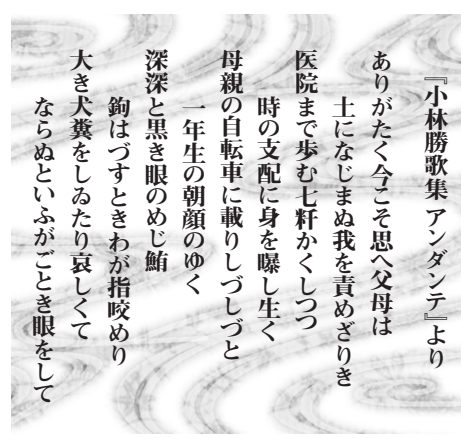 『小林勝歌集 アンダンテ』より
ありがたく今こそ思へ父母は
土になじまぬ我を責めざりき
医院まで歩む七粁かくしつつ
時の支配に身を曝し生く
母親の自転車に載りしづしづと
一年生の朝顔のゆく
深深と黒き眼のめじ鮪
鉤はづすときわが指咬めり
大き犬糞をしゐたり哀しくて
ならぬといふがごとき眼をして